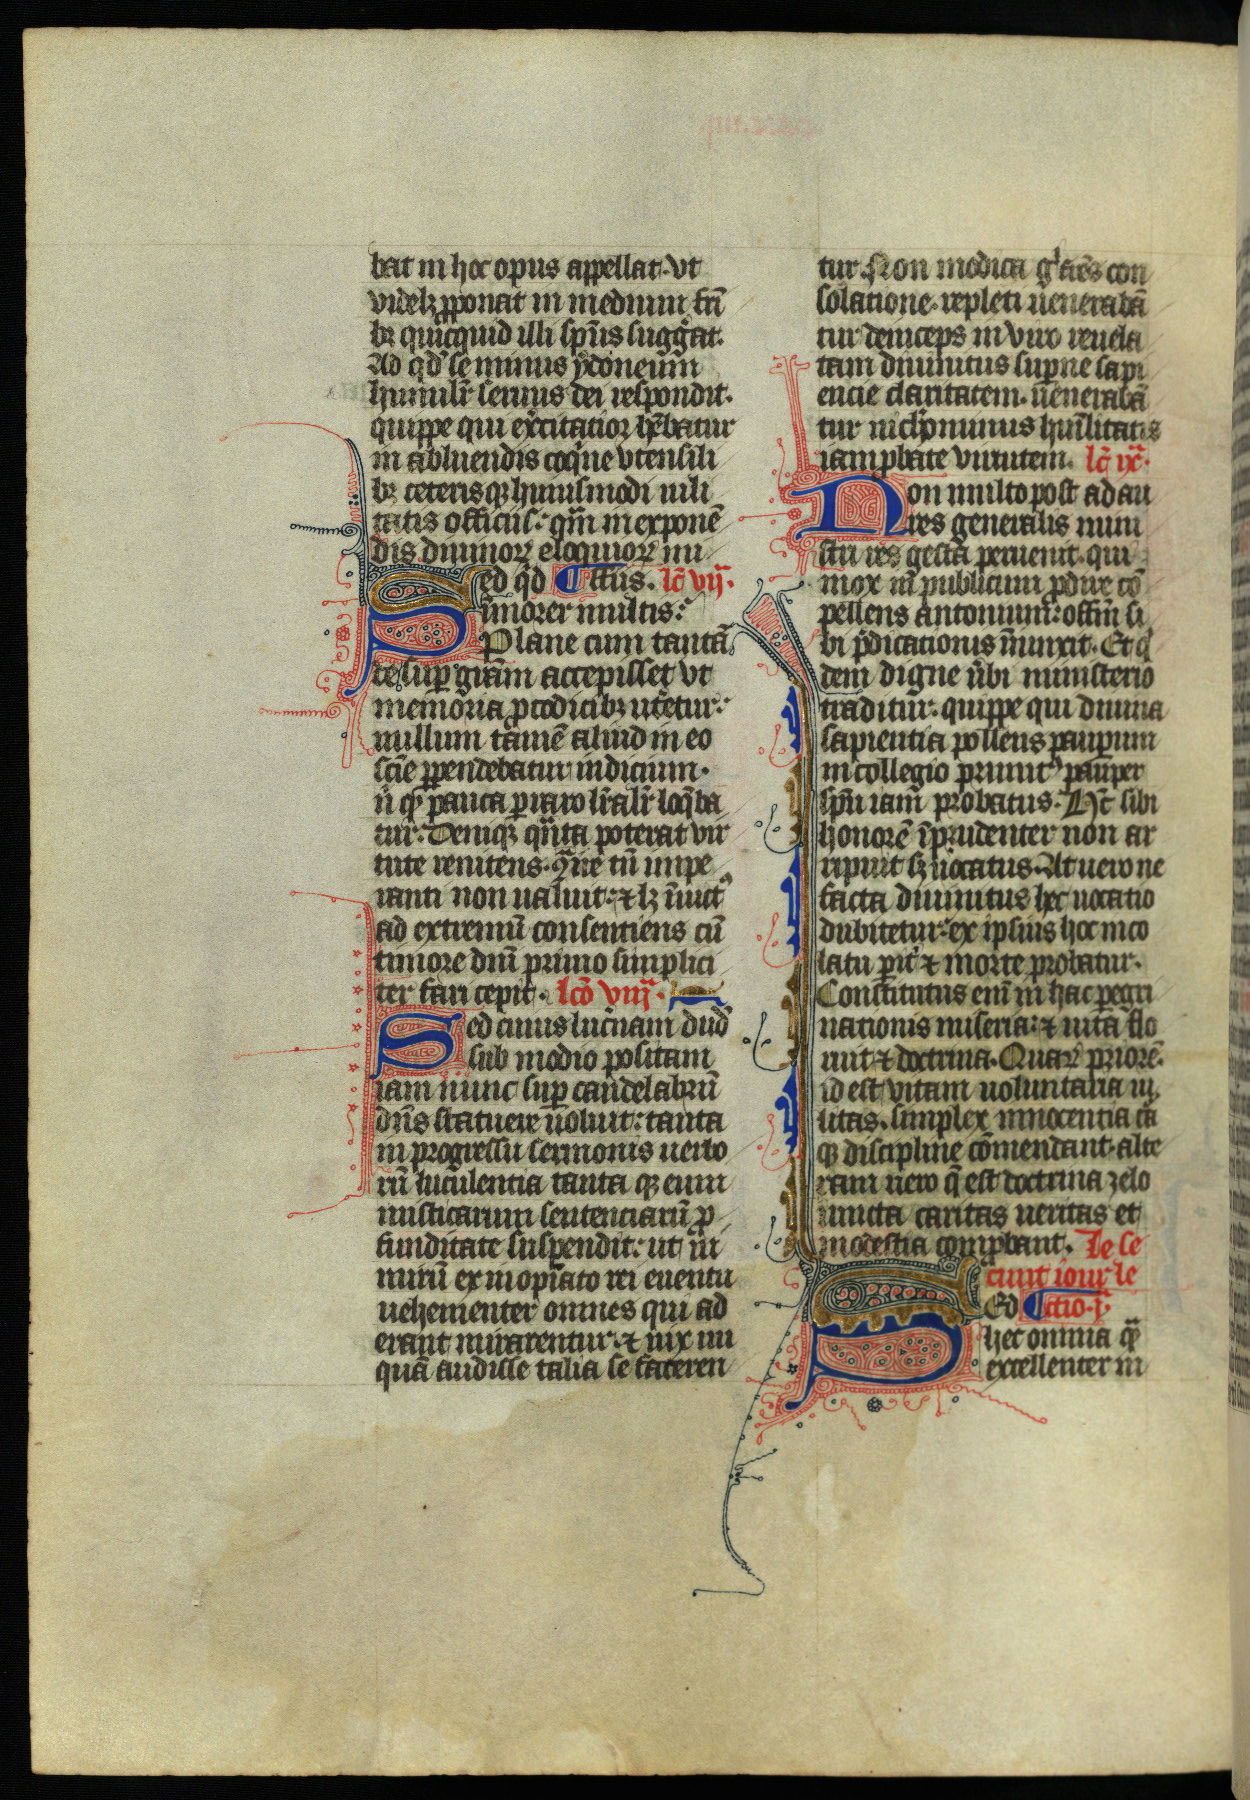 bat in hoc opus appellat. vt
videlꝫ ꝓponat in medium fr̄i
bꝫ quicquid illi sp̄us sugg̃at.
Ad qd̓ se minus ydoneum
humilr̄ seruus dei respondit.
quippe qui exc̓itatior hēbatur
in abluendis coq̄ne vtensili
bꝫ ceterisqꝫ huiusmodi uili
tatis officiis: qm̄ in exponē
dis diuinoꝝ eloquioꝝ mi
ed qd̓ ctūs. lc̄ vij.
Sīmorer multis:
Plane cum tantā
te suꝑ gr̄am accepisset vt
memoria ꝓ codicibꝫ utētur:
nullum tamē aliud in eo
scīe ꝑpendebatur indicium.
n̄ qꝫ pauca ꝑ raro lr̄alr̄ loq̄ba
tur. Deniqꝫ qn̄ta poterat vir
tute renitens. qͣre tn̄ impe
ranti non ualuit: ⁊ lꝫ īuictꝰ
ad extremū consentiens cū
timore dn̄i primo simplici
ter fari cepit. lc̄o viij.
Sed cuius luc̄nam dud̄
sub modio positam
iam nunc suꝑ candelabrū
dn̄s statuere uoluit: tanta
in progressu sermonis uerbo
rū luculentia tanta qꝫ eum
misticarum sentenciarū ꝓ
funditate suspendit: ut ni
mirū ex inopīato rei euentu
uehementer omnes qui ad
erant mirarentur. ⁊ uix ūi
quā audisse talia se fateren
tur. Non modica gͥ fr̄es con
solatione. repleti uenerabā
tur deinceps in viro reuela
tam diuinitus suꝑne sapi
encie claritatem. uenerabā
tur nichominus hūilitatis
iam ꝓbate virtutem. lc̄ ix.
Non multo post ad au
res generalis mini
stri res gesta peruenit. qui
mox in publicum ꝓdire cō
pellens antonium: officiū si
bi p̄dicationis īniunxit. Et qͥ
dem digne u̓bi ministerio
traditur. quippe qui diuina
sapientia pollens pauꝑum
in collegio primitꝰ pauper
sp̄u iam probatus. Hc̄ sibi
honorē īprudenter non ar
ripuit sꝫ uocatus. At uero ne
facta diuinitus hec uocatio
dubitetur: ex ipsius hoc inco
latu ꝑit̓ ⁊ morte probatur.
Constitutus enī in hac peregri
nationis miseria: ⁊ uita flo
ruit ⁊ doctrina. Quaꝝ priorē.
id est vitam uoluntaria ui
litas. simplex innocentia cū
qꝫ discipline cōmendant. alte
ram uero q̄ est doctrina zelo
iuncta caritas ueritas et
modestia comꝓbant. Le se
cunt iour le
Sed ctio. j.
hec omnia q̄
excellenter in